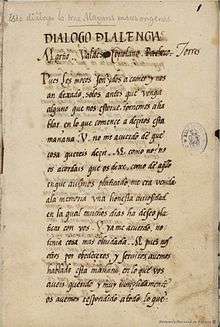 DIALOGO DE LA LENGUA
Marcio, Valdés, Coriolano, Pacheco, Torres
Pues los moços son idos a comer y nos
an dexado solos, antes que venga
alguno que nos estorve, tornemos a ha
blar en lo que començé a deziros esta
mañana. V. no me acuerdo de qué
cosa queréis dezir. M. cómo no? no
os acordáis que os dixe, como de aquello
en que avíamos platicado me era venida
a la memoria una honesta curiosidad
en la qual muchos dias ha deseo platicar
con vos. V. ya me acuerdo, no
tenía cosa más olvidada. M. pues nos
otros por obedeceros y serviros avemos
hablado esta mañana en lo que vos
avéis querido y muy cumplidamente
os avemos respondido a todo lo que